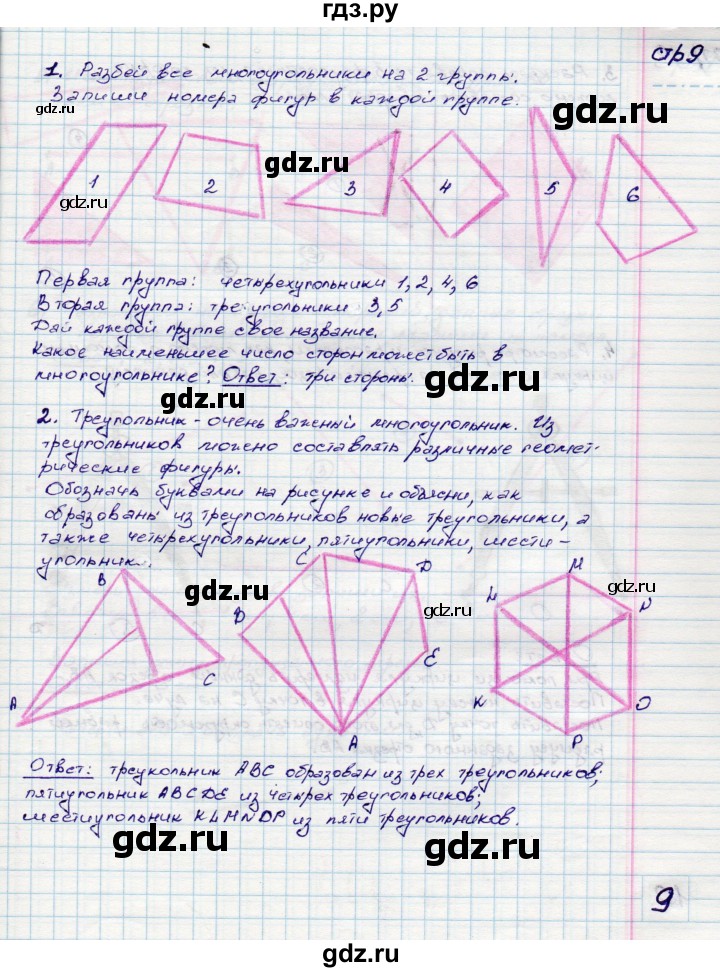 гдз.ру
стр 9
1. Разбей все многоугольники на 2 группы.
Запиши номера фигур в каждой группе.
gdz.ru
gdz.ru
gdz.ru
gdz.ru
1 2 3 4 5 6
gdz.ru
gdz.ru
Первая группа: четырехугольники 1, 2, 4, 6
Вторая группа: треугольники 3,5
Дай каждой группе свое название.
gdz.ru
Какое наименьшее число сторон может быть в
многоугольнике? Ответ: три стороны.
gdz.ru
gdz.ru
2. Треугольник - очень важный многоугольник. Из
треугольников можно составлять различные геомет-
рические фигуры.
gdz.ru
gdz.ru
Обозначь буквами на рисунке и объясни, как
образованы из треугольников новые треугольники, а
также четырехугольники, пятиугольники, шести-
угольник.
gdz.ru
gdz.ru
B C D M
gdz.ru
L N
B
C E
K O
A
A P
gdz.ru
gdz.ru
Ответ: треукольник ABC образован из трех треугольников;
пятиугольник ABCDE из четырех треугольников;
шестиугольник KLMNOP из пяти треугольников.
gdz.ru
gdz.ru
gdz.ru
9
gdz.ru
gdz.ru